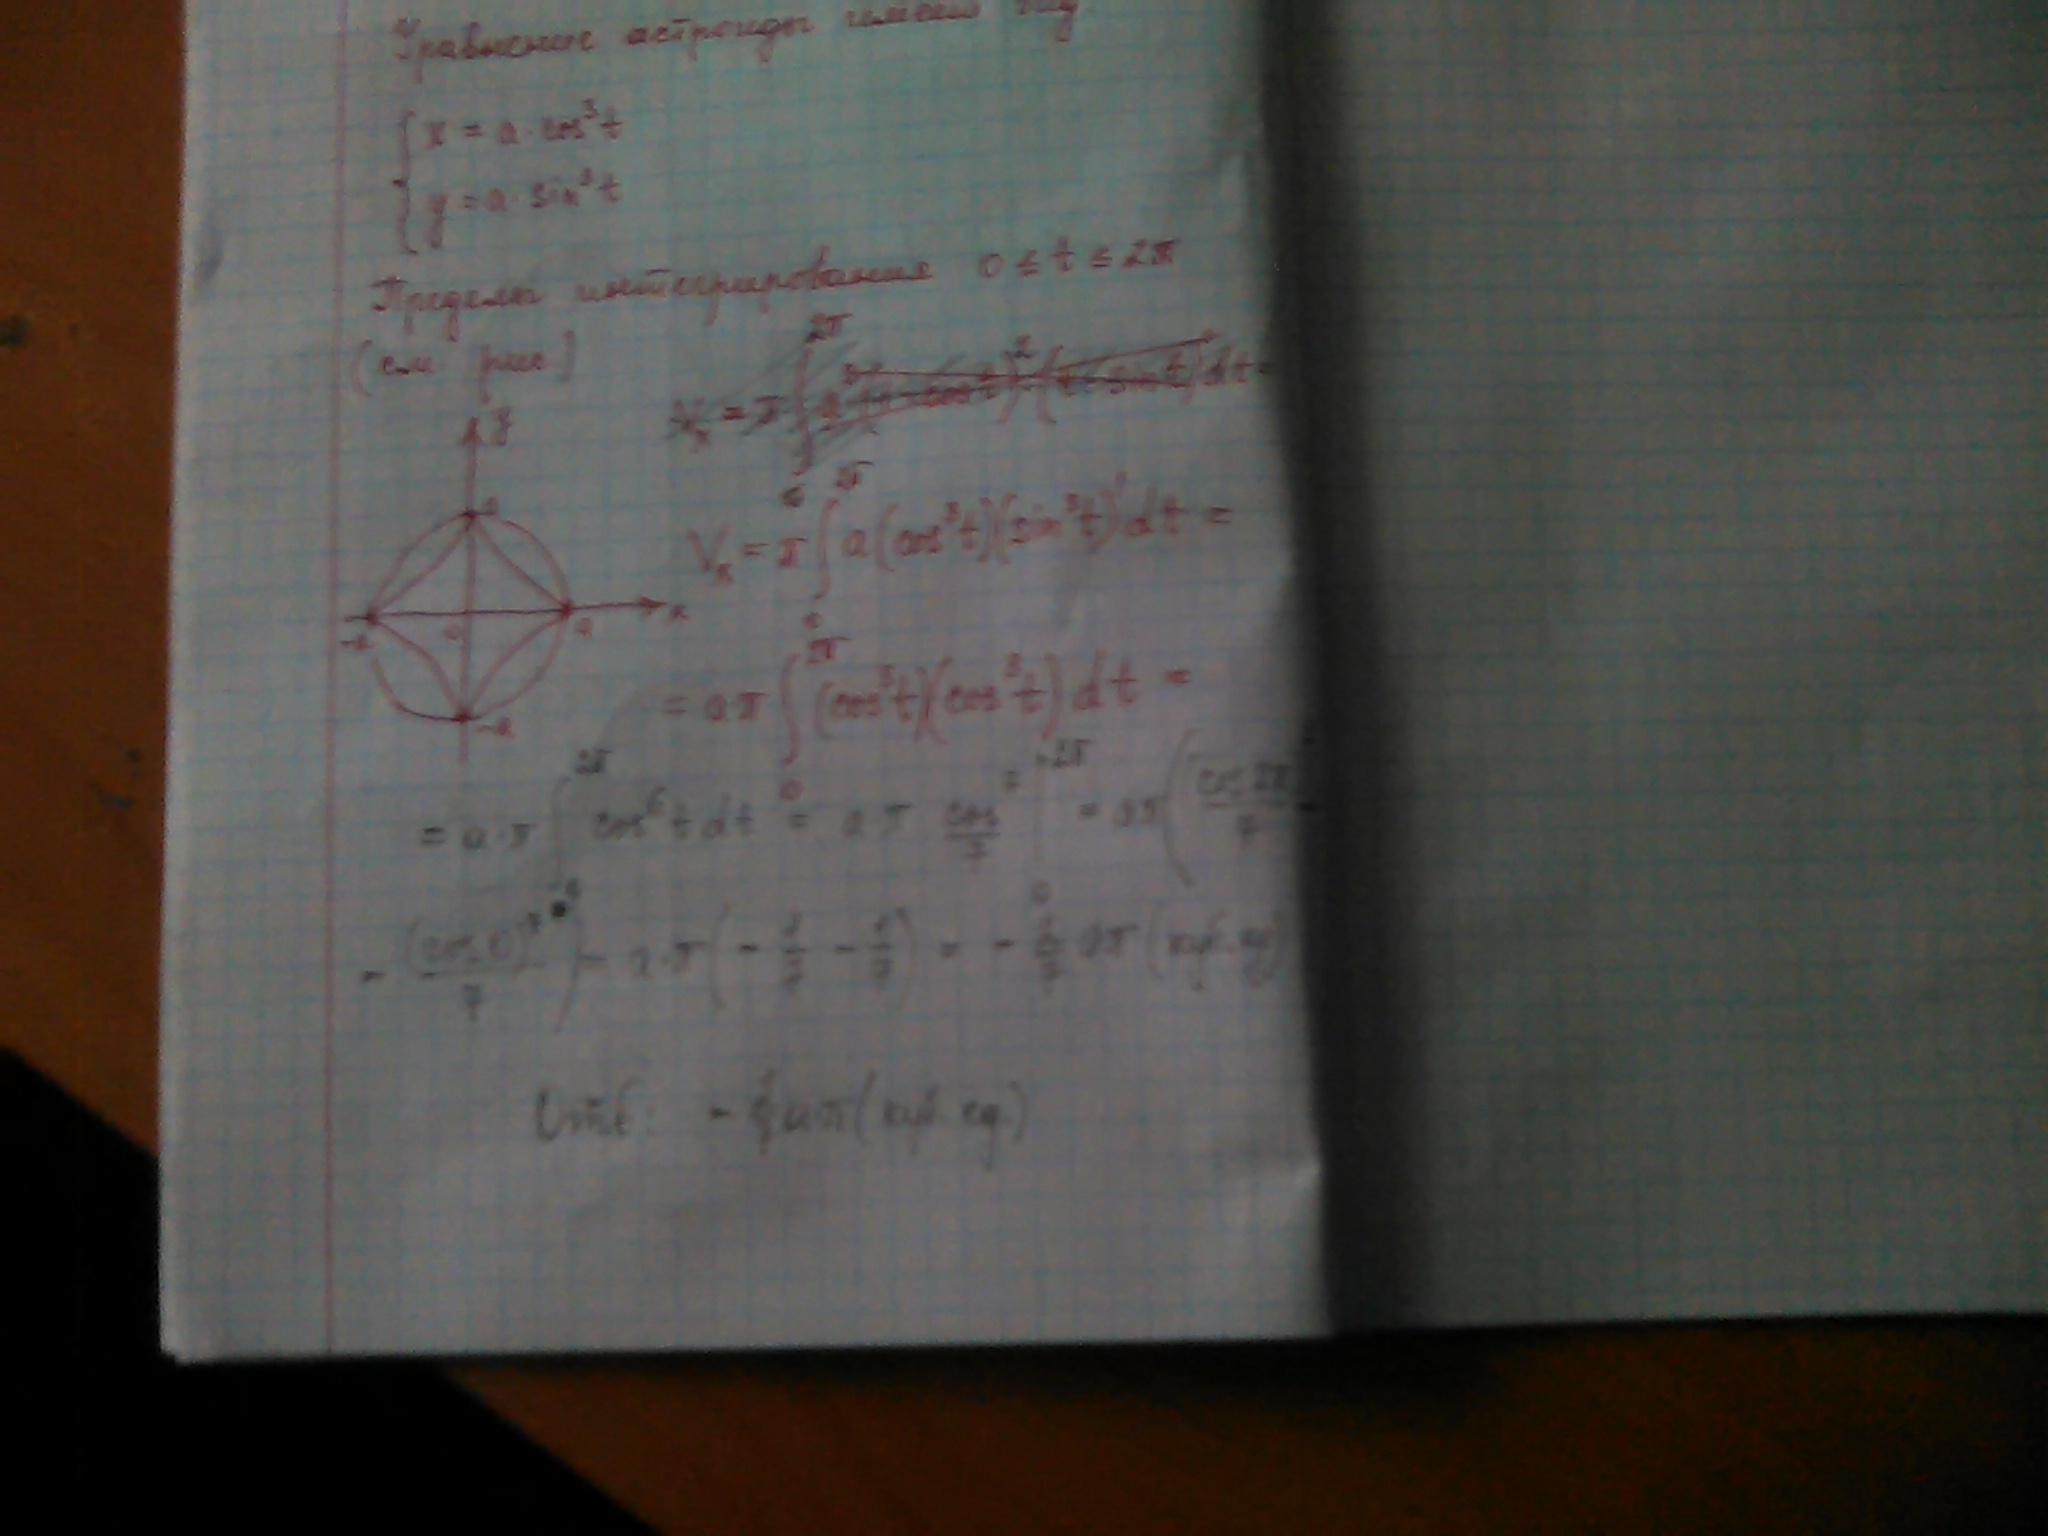 Уравнение астроиды имеет вид
x = a · cos³t
y = a · sin³t
Пределы интегрирования 0 ≤ t ≤ 2π
(см рис)
Vₓ = π ∫
2π
0
y
a
-a
0
a
x
-a
Vₓ = π ∫₀^2π a (cos³t)(sin³t)' dt =
= aπ ∫₀^2π (cos³t)(cos³t) dt =
= a·π ∫₀^2π cos⁶t dt = aπ cos⁷/7 |₀^2π = aπ (cos 2π/7
- (cos 0)⁷/7) = a·π (- 1/7 - 1/7) = - aπ (куб. ед)
Отв: - aπ (куб. ед.)